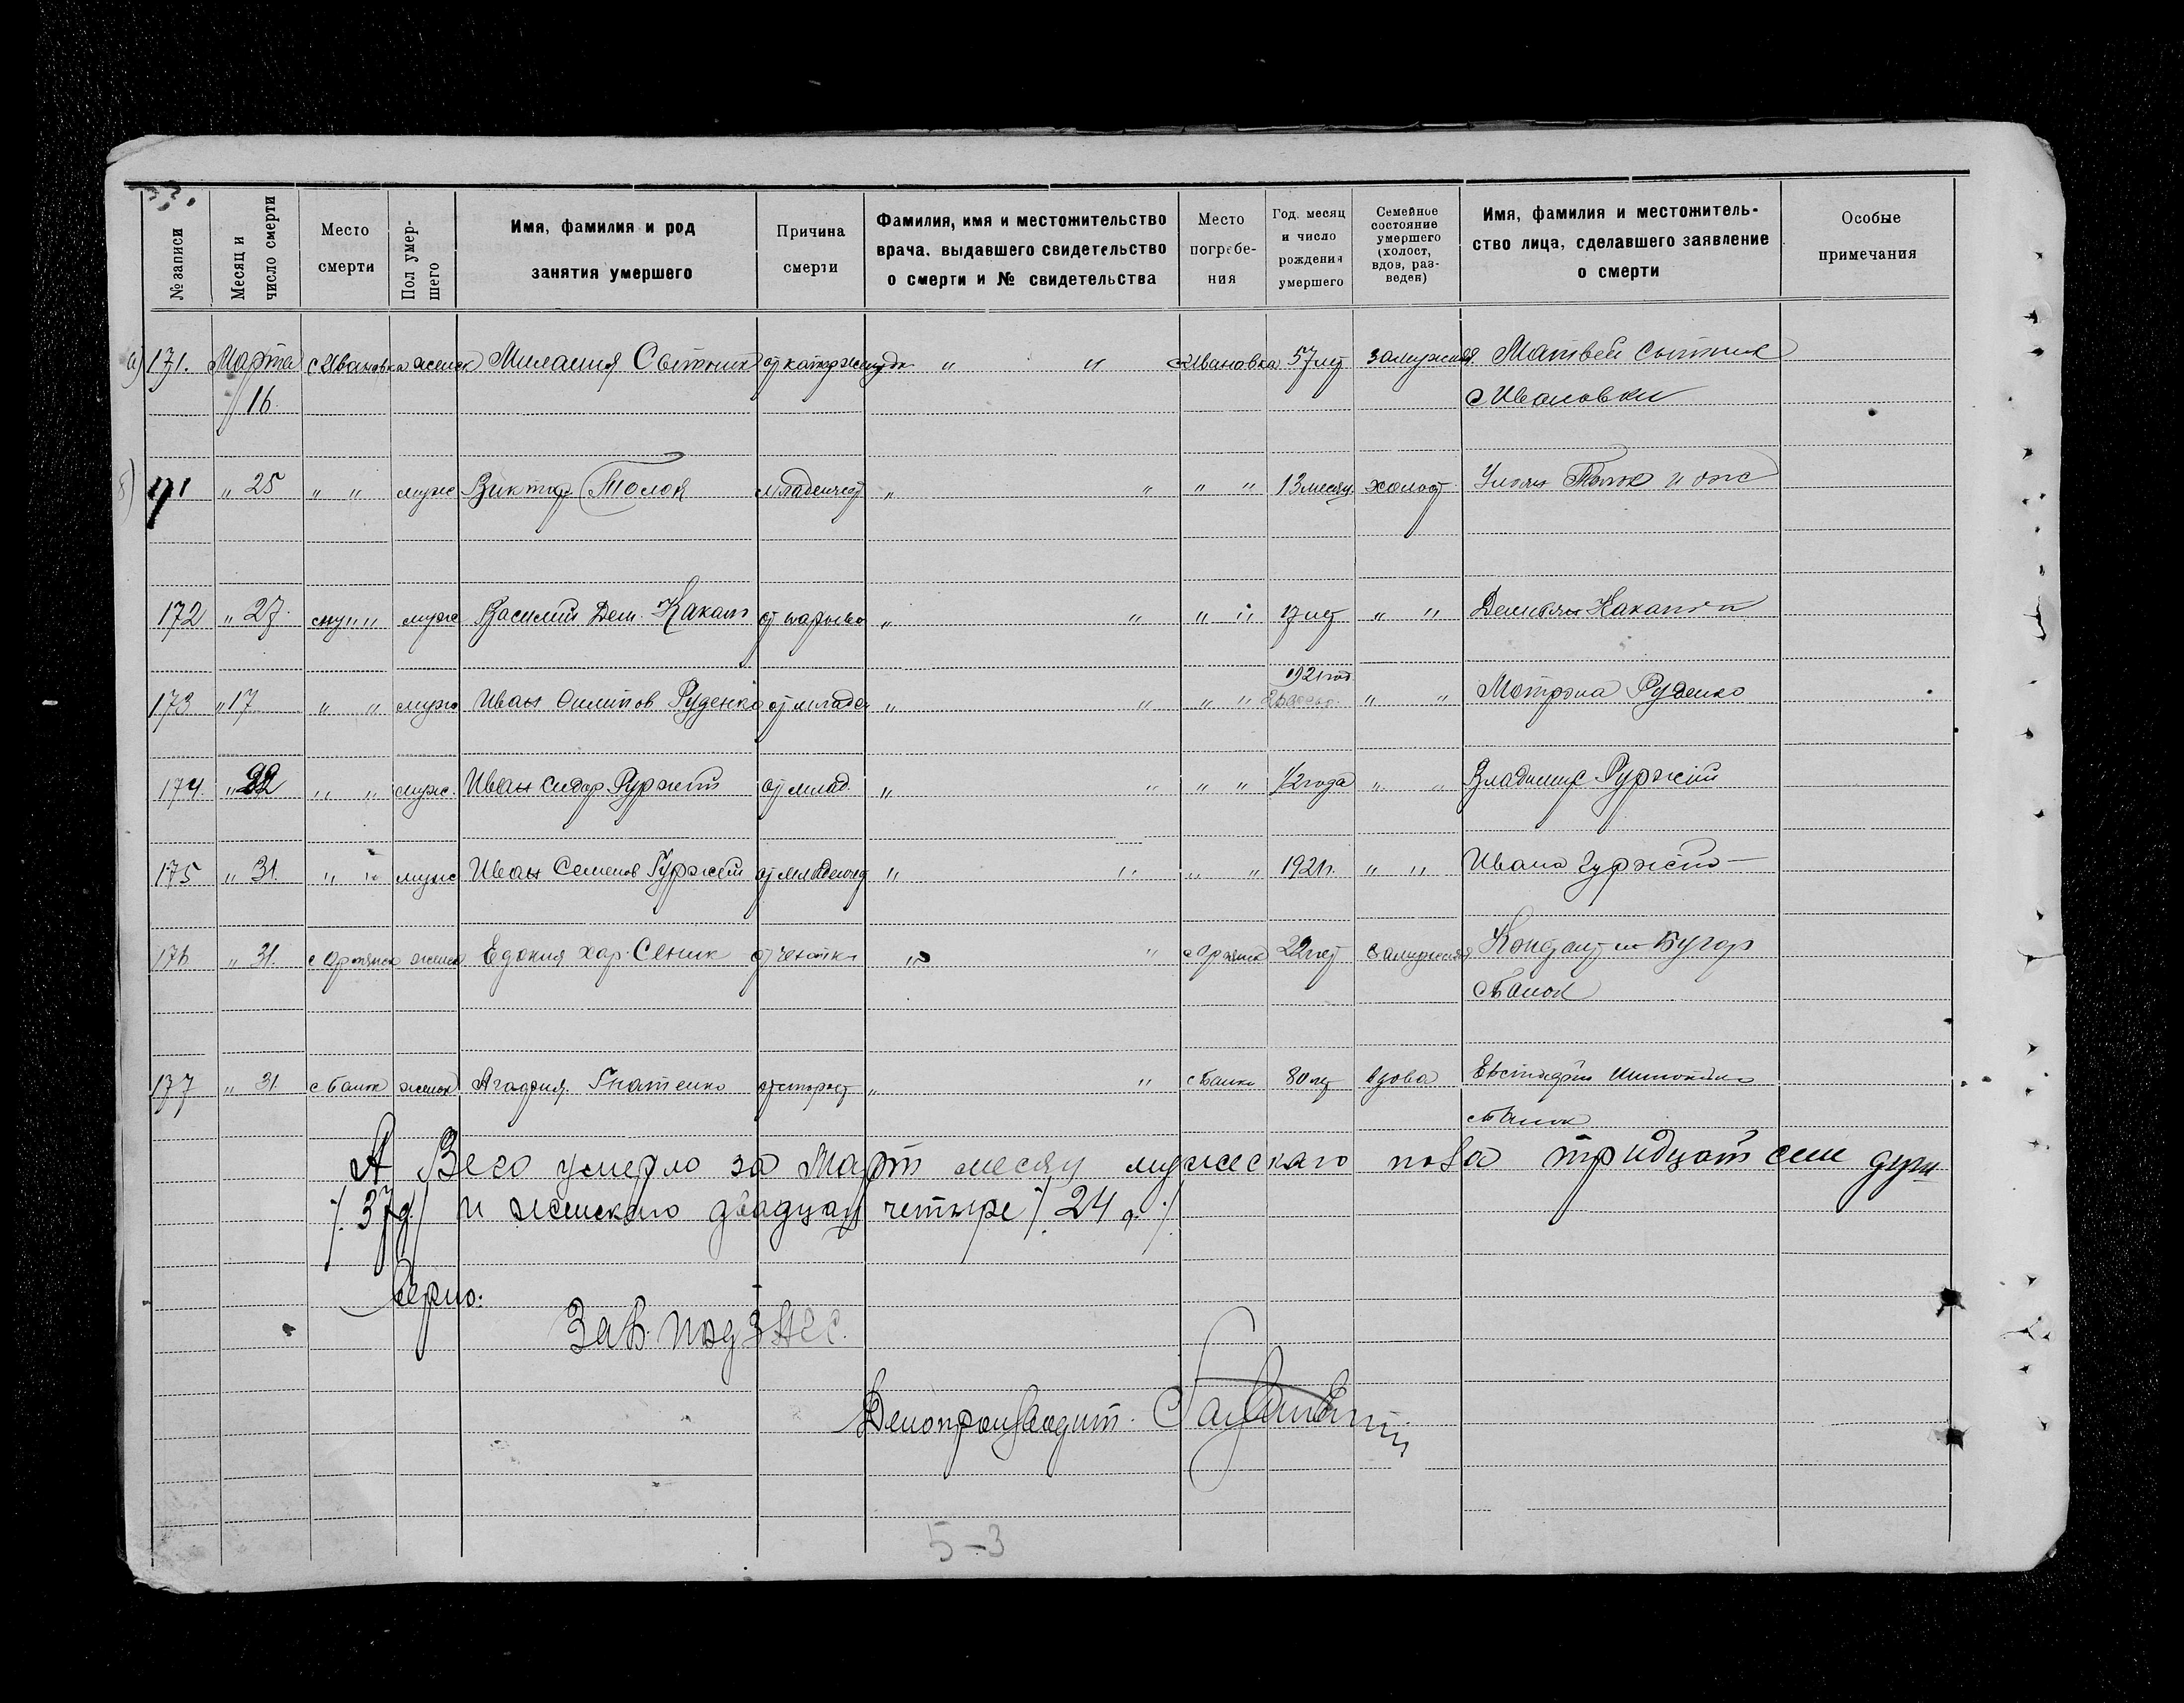 № записи
Месяц и число смерти
Место смерти
Пол умершего
Имя, фамилия и род занятия умершего
Причина смерти
Фамилия, имя и местожительство врача, выдавшего свидетельство о смерти и № свидетельства
Место погребения
Год, месяц и число рождения умершего
Семейное состояние умершего (холост, вдов, разведен)
Имя, фамилия и местожительство лица, сделавшего заявление о смерти
Особые примечания
а) 171. Марта с Ивановка женск Милания Сытник от катар желудк " " с Ивановка 57 лет замужняя Матвей Сытник
16 с Ивановки
б) 171 " 25 " " мужс Виктор Толок младенчест " " " " 13 месяц холост Толок
172 " 27 " " мужс Василий Дем. Какат " " " " 17 лет " " Демьян
1921 год
173 " 17 " " мужс Иван Филипов Руденко от младен " " " " " " Мотрона Руденко
174. " 22 " " мужс. Иван Сидор Гуржий от млад. " " " " 1/2 года " " Владимир Гуржий
175 " 31. " " мужс Иван Семенов Гуржий от младенчест " " " " 1921 г. " " Ивана Гуржий
176 " 31. женск Едокия Хар. Сеник " " 22 лет замужняя Бугор
с Банок
177 " 31. с Банок женск Агафия Гнатенко от старост " " с Банки 80 лет вдова
с Банок
А Всего умерло за Март месяц мужеского пола тридцат семь душ
/. 37 д/ и женского двадцат четыре /. 24 д. /.
Верно:
Зав. подЗАГС.
Делопроизводит.
5-3